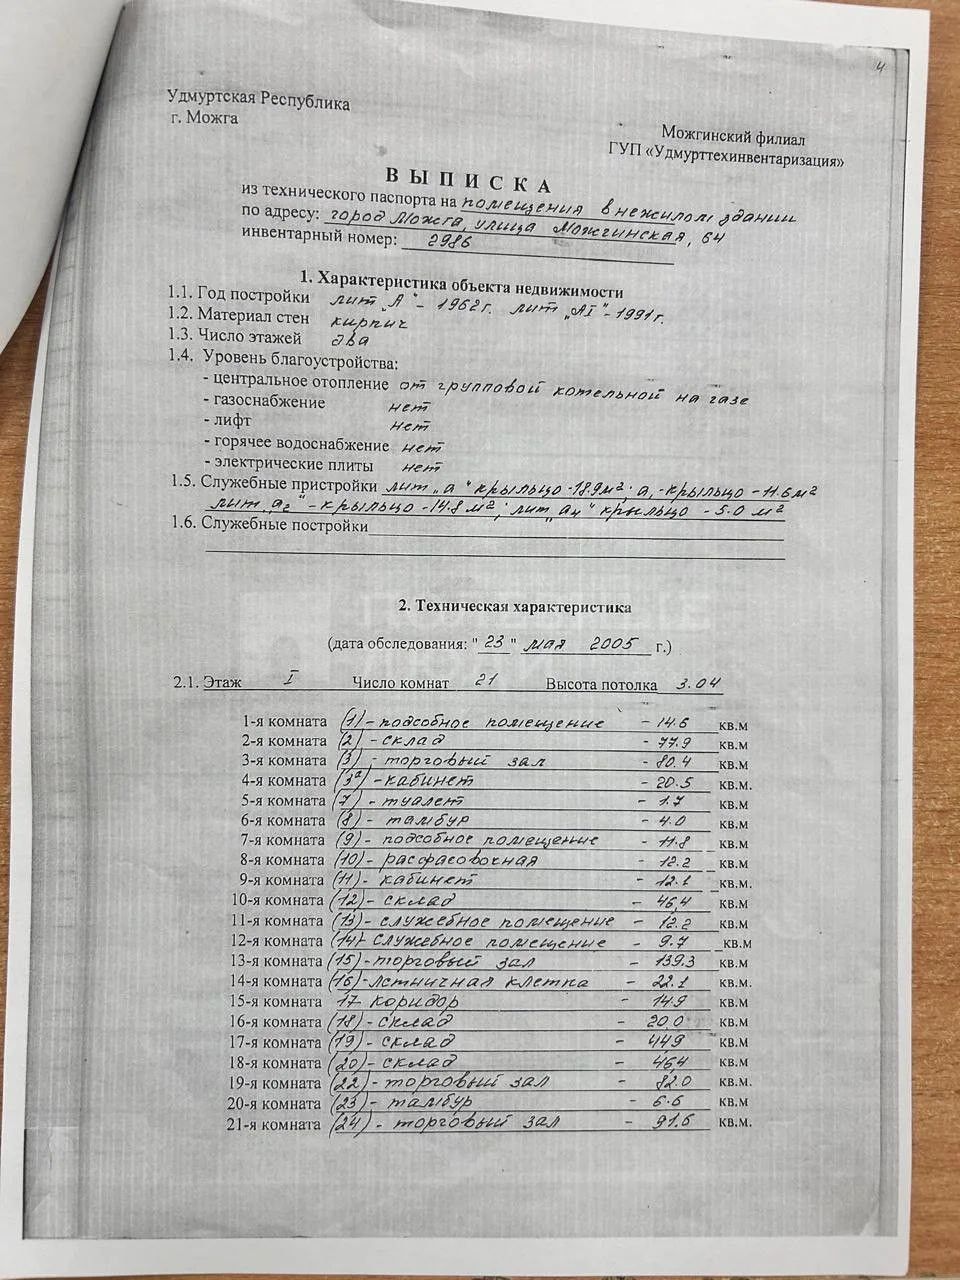 4
Удмуртская Республика
г. Можга
Можгинский филиал
ГУП «Удмурттехинвентаризация»
ВЫПИСКА
из технического паспорта на помещения в нежилом здании
по адресу: город Можга, улица Можгинская, 64
инвентарный номер: 2986
1. Характеристика объекта недвижимости
1.1. Год постройки лит „А" - 1962г. лит „АI" - 1991г.
1.2. Материал стен кирпич
1.3. Число этажей два
1.4. Уровень благоустройства:
- центральное отопление от групповой котельной на газе
- газоснабжение нет
- лифт нет
- горячее водоснабжение нет
- электрические плиты нет
1.5. Служебные пристройки лит „а" крыльцо - 18.9м²; а₁ - крыльцо - 11.6м²
лит „а₂" - крыльцо - 14.8 м²; лит „а₄" крыльцо - 5.0 м²
1.6. Служебные постройки
2. Техническая характеристика
(дата обследования: "23" мая 2005 г.)
2.1. Этаж I Число комнат 21 Высота потолка 3.04
1-я комната (1) - подсобное помещение - 14.6 кв.м
2-я комната (2) - склад - 77.9 кв.м
3-я комната (3) - торговый зал - 80.4 кв.м
4-я комната (3ᵃ) - кабинет - 20.5 кв.м.
5-я комната (7) - туалет - 1.7 кв.м
6-я комната (8) - тамбур - 4.0 кв.м
7-я комната (9) - подсобное помещение - 11.8 кв.м
8-я комната (10) - расфасовочная - 12.2 кв.м
9-я комната (11) - кабинет - 12.1 кв.м.
10-я комната (12) - склад - 46,4 кв.м
11-я комната (13) - служебное помещение - 12.2 кв.м
12-я комната (14) - служебное помещение - 9.7 кв.м
13-я комната (15) - торговый зал - 139.3 кв.м
14-я комната (16) - лстничная клетка - 22.1 кв.м.
15-я комната 17 коридор - 14.9 кв.м
16-я комната (18) - склад - 20.0 кв.м
17-я комната (19) - склад - 44.9 кв.м
18-я комната (20) - склад - 46,4 кв.м
19-я комната (22) - торговый зал - 82.0 кв.м.
20-я комната (23) - тамбур - 6.6 кв.м
21-я комната (24) - торговый зал - 91.6 кв.м.